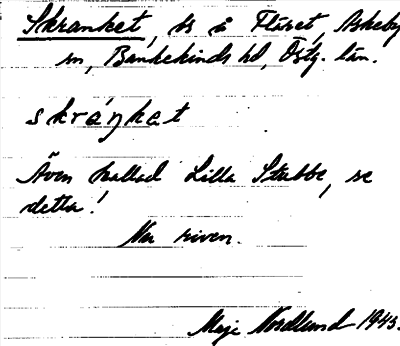 Skranket, ts å Fläret, Askeby
sn, Bankekinds hd, Östg. län.
skráŋkat
Även kallad Lilla Stubbe, se
detta!
Nu riven.
Maje Nordlund 1943.